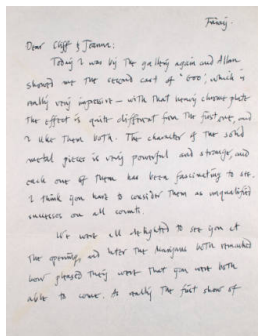 Friday.
Dear Cliff & Joanna:
Today I was by the gallery again and Allan
showed me the second cast of "Goo", which is
really very impressive — with that heavy chrome plate
the effect is quite different from the first one, and
I like them both. The character of the solid
metal pieces is very powerful and strange, and
each one of them has been fascinating to see.
I think you have to consider them as unqualified
successes on all counts.
We were all delighted to see you at
the opening, and later the both remarked
how pleased they were that you were both
able to come. As really the first show of